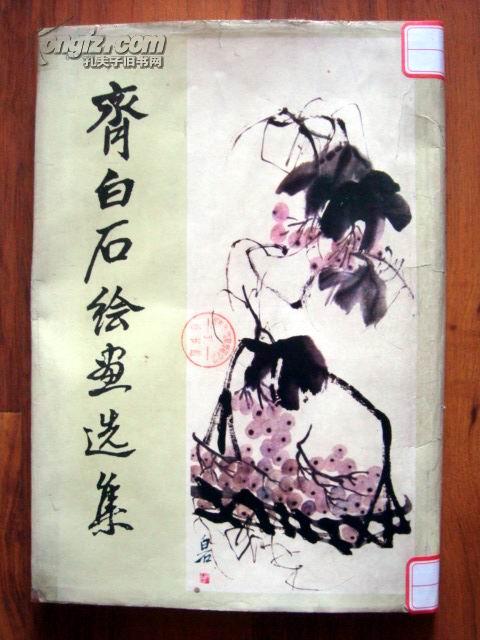 ongfz.com
孔夫子旧书网
齊白石绘画选集
白石